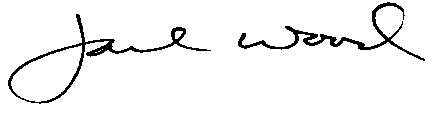 Jane Wood